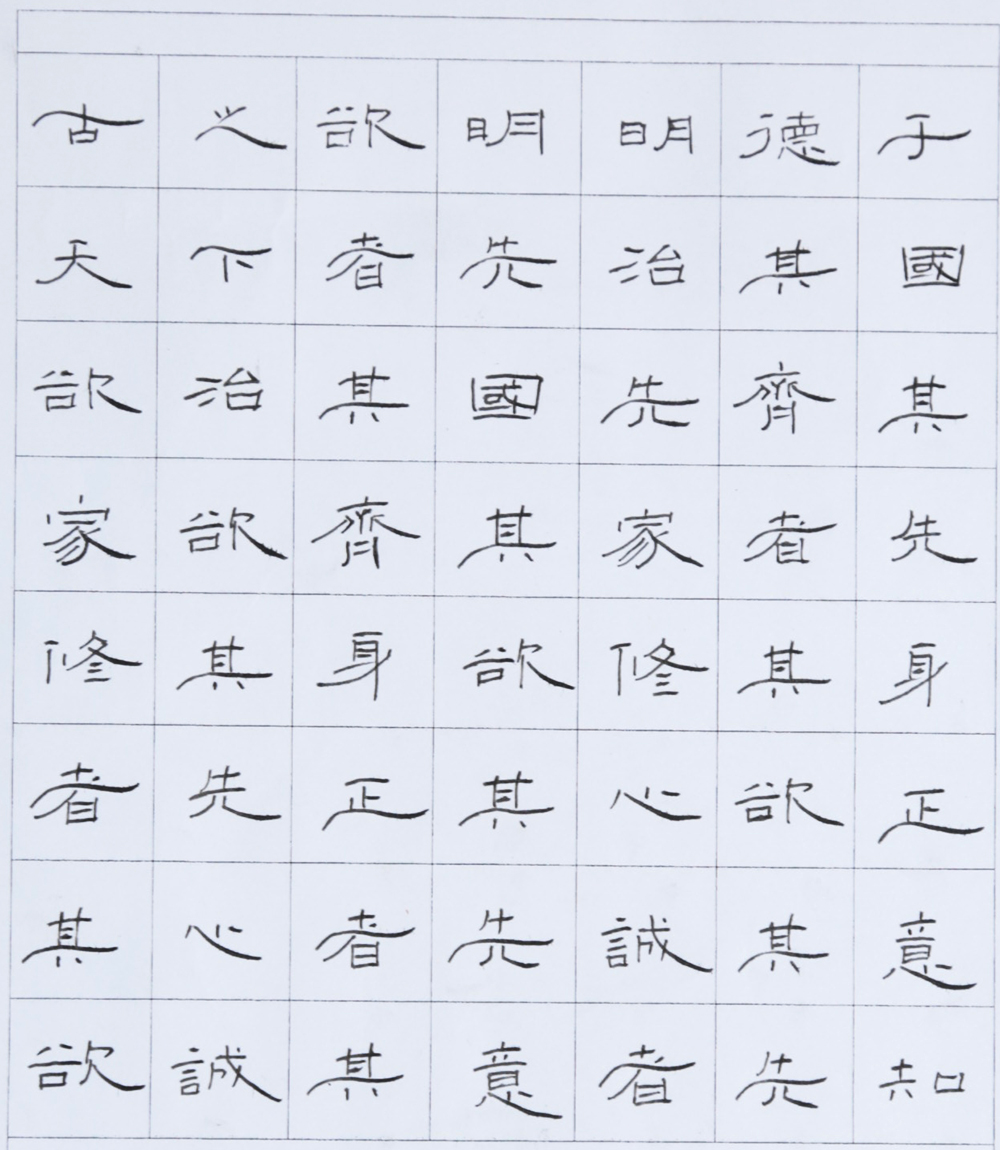 古之欲明明德于
天下者先治其國
欲治其國先齊其
家欲齊其家者先
修其身欲修其身
者先正其心欲正
其心者先誠其意
欲誠其意者先知